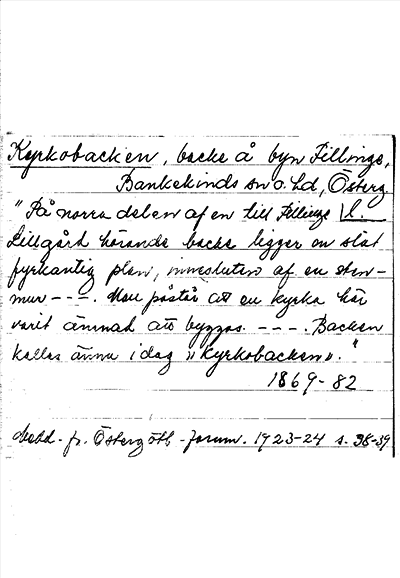 Kyrkobacken, backe å byn Fillinge,
Bankekinds sn o. hd, Österg
"På norra delen af en till Fillinge l.
Lillgård hörande backe ligger en slät
fyrkantig plan, innesluten af en sten-
mur ---. Man påstår att en kyrka här
varit ämnad att byggas. ---. Backen
kallas ännu idag »Kyrkobacken»."
1869-82
Medd. fr. Östergötl. fornm. 1923-24 s. 38-39